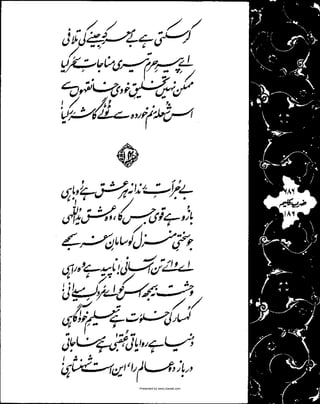 کر سکتی ہے بے معرکہ جینے کی تلافی
اے پیرِ حرم تیری مناجاتِ سحر کیا
ممکن نہیں تخلیقِ خودی خانقہوں سے
اس شعلۂ نم خوردہ سے ٹوٹے گا شرر کیا
بے جرأتِ رندانہ ہر عشق ہے روباہی
بازو ہے قوی جس کا، وہ عشق یداللہی
جو سختیِ منزل کو سامانِ سفر سمجھے
اے وائے تن آسانی! ناپید ہے وہ راہی
وحشت نہ سمجھ اس کو اے مردکِ میدانی!
کہسار کی خلوت ہے تعلیمِ خود آگاہی
دنیا ہے روایاتی، عقبیٰ ہے مناجاتی
در باز دو عالم را، این است شہنشاہی!
ضربِ کلیم
۱۸۶